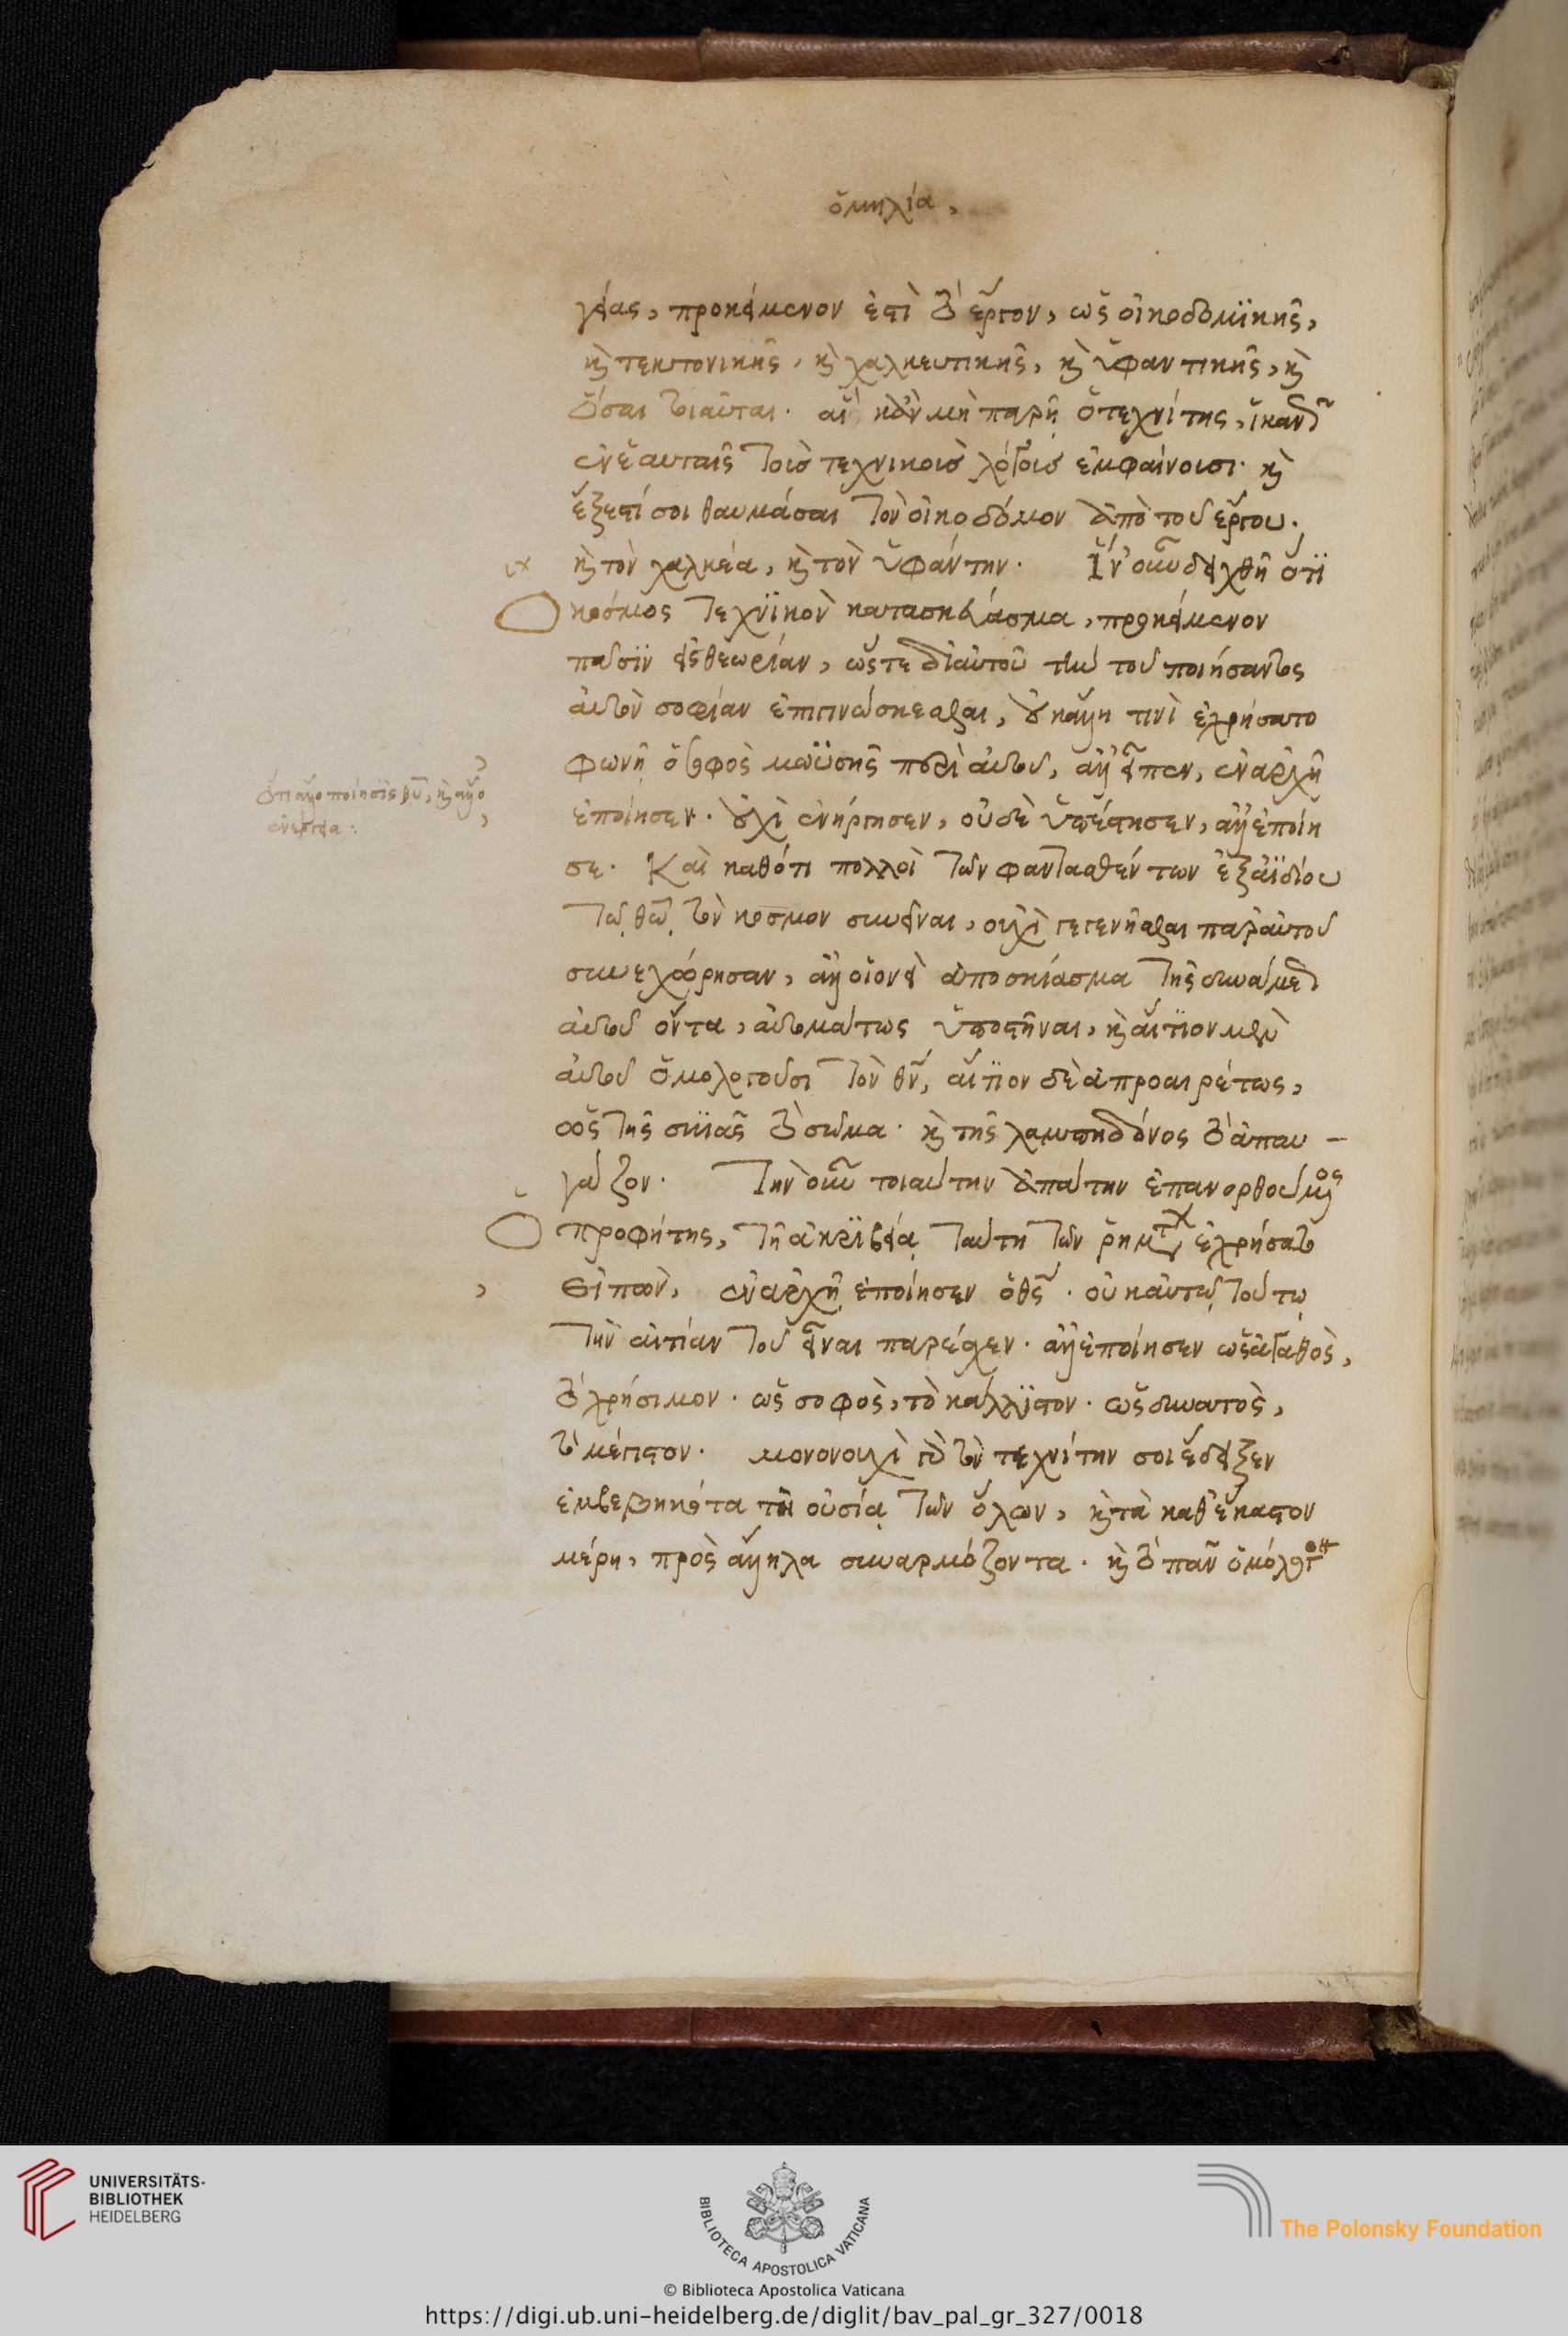 ὁμηλία,
γείας, προκείμενον ἐστὶ τὸ ἔργον, ὡς οἰκοδομϊκῆς,
καὶ τεκτονικῆς, καὶ χαλκευτικῆς, καὶ ὑφαντικῆς, καὶ
ὅσαι τοιαῦται· αἳ κἂν μὴ παρῇ ὁ τεχνίτης, ἱκανῶς
ἐν ἑαυταῖς τοῖς τεχνικοὺς λόγοις ἐμφαίνουσι· καὶ
ἔξεστί σοι θαυμάσαι τὸν οἰκοδόμον ἀπὸ τοῦ ἔργου·
καὶ τὸν χαλκέα, καὶ τὸν ὑφάντην· Ἵν' οὖν δειχθῇ ὅτϊ
Ὁ κόσμος τεχνϊκὸν κατασκεύασμα, προκείμενον
πᾶσϊν εἰς θεωρίαν, ὥστε δι' αὐτοῦ τὴν τοῦ ποιήσαντος
αὐτὸν σοφίαν ἐπιγινώσκεσθαι, οὐκ ἄλλη τινὶ ἐχρήσατο
φωνῇ ὁ σοφὸς μωϋσῆς περὶ αὐτοῦ, ἀλλ' εἶπεν, ἐν ἀρχῇ
ἐποίησεν· οὐχὶ ἐνήργησεν, οὐδὲ ὑπέστησεν, ἀλλ' ἐποίη
σε· Καὶ καθότι πολλοὶ τῶν φαντασθέντων ἐξ ἀϊδίου
τῷ θῶ τὸν κόσμον συνεῖναι, οὐχὶ γεγενῆσθαι παρ' αὐτοῦ
συνεχώρησαν, ἀλλ' οἱονεὶ ἀποσκίασμα τῆς δυνάμεως
αὐτοῦ ὄντα, αὐτομάτως ὑποστῆναι, καὶ αἴτϊον μὲν
αὐτοῦ ὁμολογοῦσι τὸν θν, αἴτϊον δὲ ἀπροαιρέτως,
ὡς τῆς σκϊᾶς τὸ σῶμα· καὶ τῆς λαμπηδόνος τὸ ἀπαυ-
γάζον· Τὴν οὖν τοιαύτην ἀπάτην ἐπανορθούμενος
Ὁ προφήτης, τῇ ἀκρϊβείᾳ ταύτῃ τῶν ῥημάτων ἐχρήσατο
εἰπὼν, ἐν ἀρχῇ ἐποίησεν ὁ θς· οὐκ αὐτῷ τούτῳ
τὴν αἰτίαν τοῦ εἶναι παρέσχεν· ἀλλ' ἐποίησεν ὡς ἀγαθὸς,
τὸ χρήσιμον· ὡς σοφὸς, τὸ κάλλϊστον· ὡς δυνατὸς,
τὸ μέγιστον· μονονουχὶ γὰρ τὸν τεχνίτην σοι ἔδειξεν
ἐμβεβηκότα τῇ οὐσίᾳ τῶν ὅλων, καὶ τὰ καθ' ἕκαστον
μέρη, πρὸς ἄλληλα συναρμόζοντα· καὶ τὸ πᾶν ὁμόλογον
ὅτι ἄλλο ποίησϊς θυ, καὶ ἄλλο
ἐνέργεια:
UNIVERSITÄTS-
BIBLIOTHEK
HEIDELBERG
BIBLIOTECA APOSTOLICA VATICANA
The Polonsky Foundation
© Biblioteca Apostolica Vaticana
https://digi.ub.uni-heidelberg.de/diglit/bav_pal_gr_327/0018